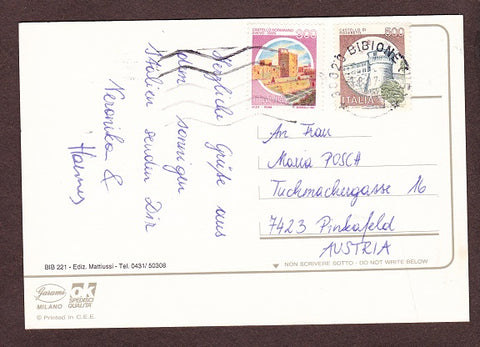 Herzliche Grüße aus
dem sonnigen
Italien senden Dir
Veronika &
Hannes
900
500
ITALIA
BIBIONE
An Frau
Maria POSCH
Tuchmachergasse 16
7423 Pinkafeld
AUSTRIA
NON SCRIVERE SOTTO - DO NOT WRITE BELOW
BIB 221 - Ediz. Mattiussi - Tel. 0431/ 50308
Garami
MILANO
OK
SPEDISCI
QUALITA'
© Printed in C.E.E.